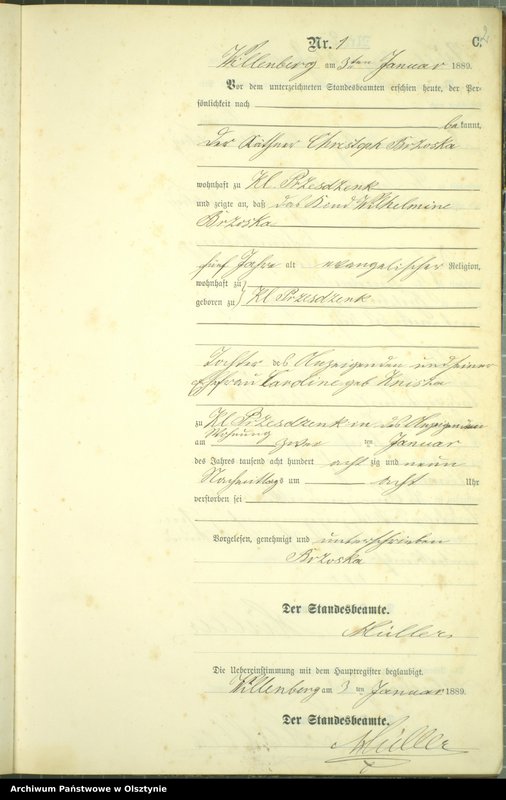 Nr. 1
C.
2
Willenberg am 3ten Januar 1889.
Vor dem unterzeichneten Standesbeamten erschien heute, der Per-
sönlichkeit nach
bekannt,
der Käthner Christoph Brzoska
wohnhaft zu Kl. Przesdzenk
und zeigte an, daß das Kind Wilhelmine
Brzoska
fünf Jahre alt evangelischer Religion,
wohnhaft zu
geboren zu Kl Przesdzenk
Tochter des Anzeigenden und seiner
Ehefrau Caroline geb
zu Kl Przesdzenk in des Anzeigenden
Wohnung
am zwei ten Januar
des Jahres tausend acht hundert acht zig und neun
Nachmittags um acht Uhr
verstorben sei
Vorgelesen, genehmigt und unterschrieben
Brzoska
Der Standesbeamte.
Müller
Die Uebereinstimmung mit dem Hauptregister beglaubigt.
Willenberg am 3 ten Januar 1889.
Der Standesbeamte.
Müller
Archiwum Państwowe w Olsztynie